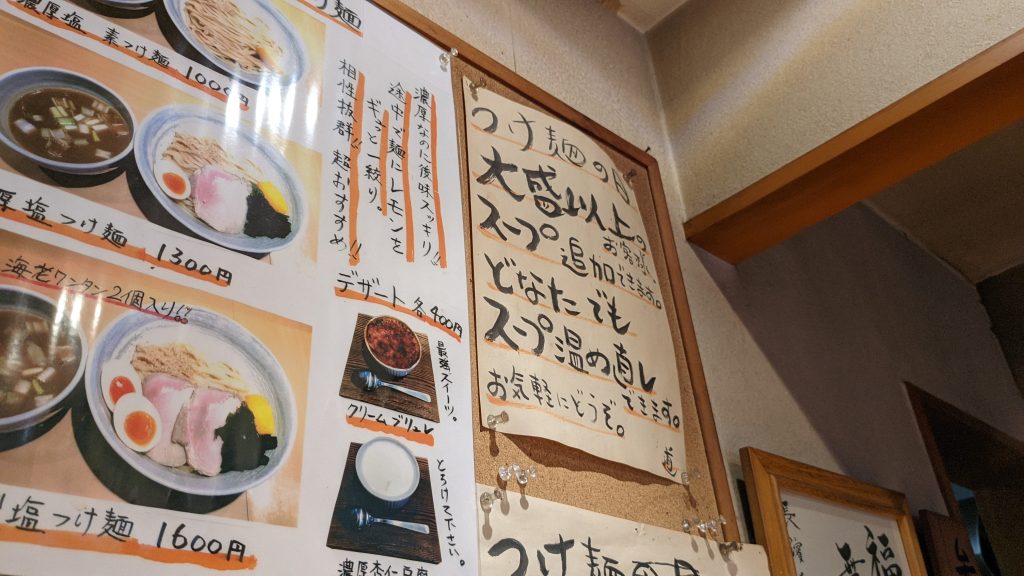 つけ麺
濃厚塩 素つけ麺 1000円
厚塩つけ麺 1300円
海老ワンタン2個入り!!
塩つけ麺 1600円
濃厚なのに後味スッキリ!!
途中で麺にレモンを
ギュっと一絞り。
相性抜群!! 超おすすめ!!
デザート 各400円
最強スイーツ。
クリームブリュレ
とろけて下さい。
濃厚杏仁豆腐
つけ麺の日
大盛以上の
お客様
スープ追加できます。
どなたでも
スープ温め直し
できます。
お気軽にどうぞ。
つけ麺の日
福